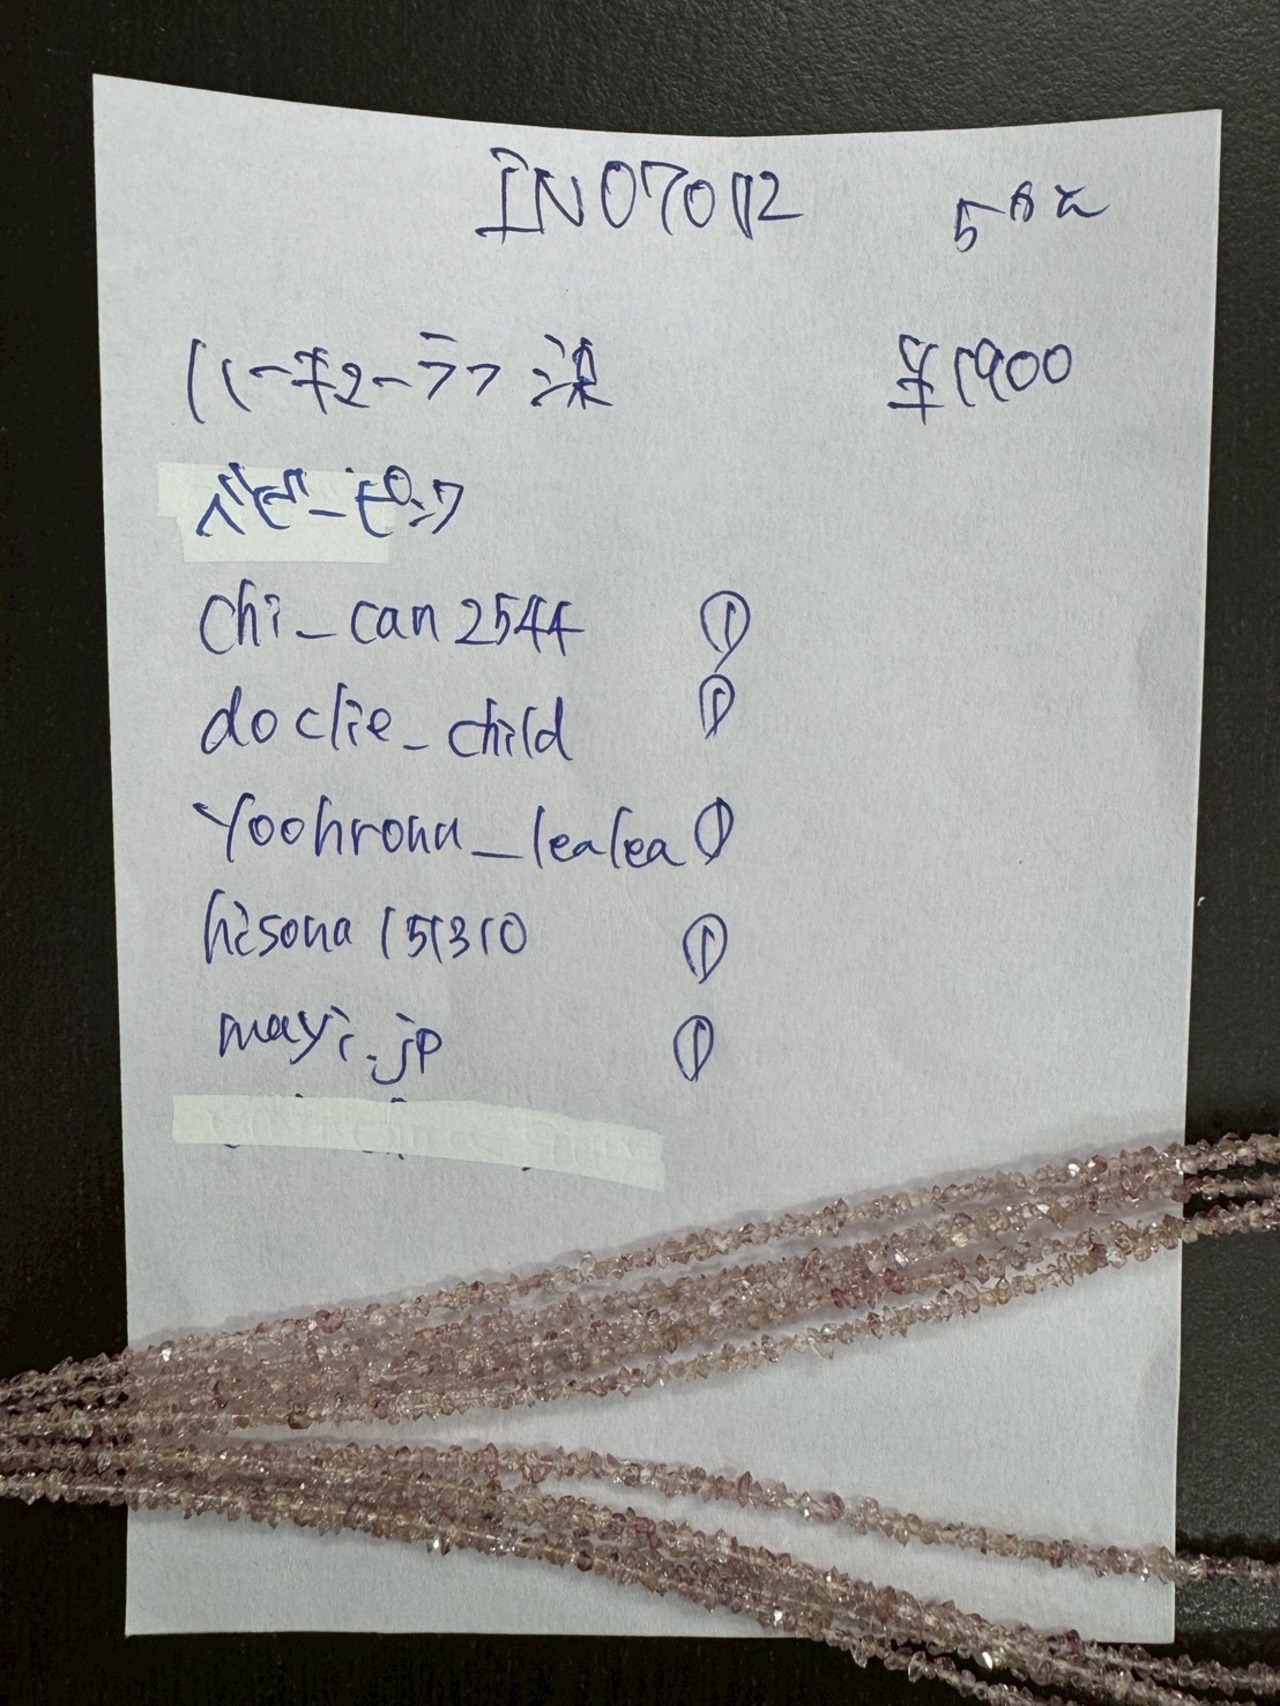 IN070112 5点
ハーキマーララ 染 ¥1900
ベビーピンク
chi_can2544 ①
doclie_child ①
Yoohronu_lealea ①
hisona151310 ①
mayi.jp ①